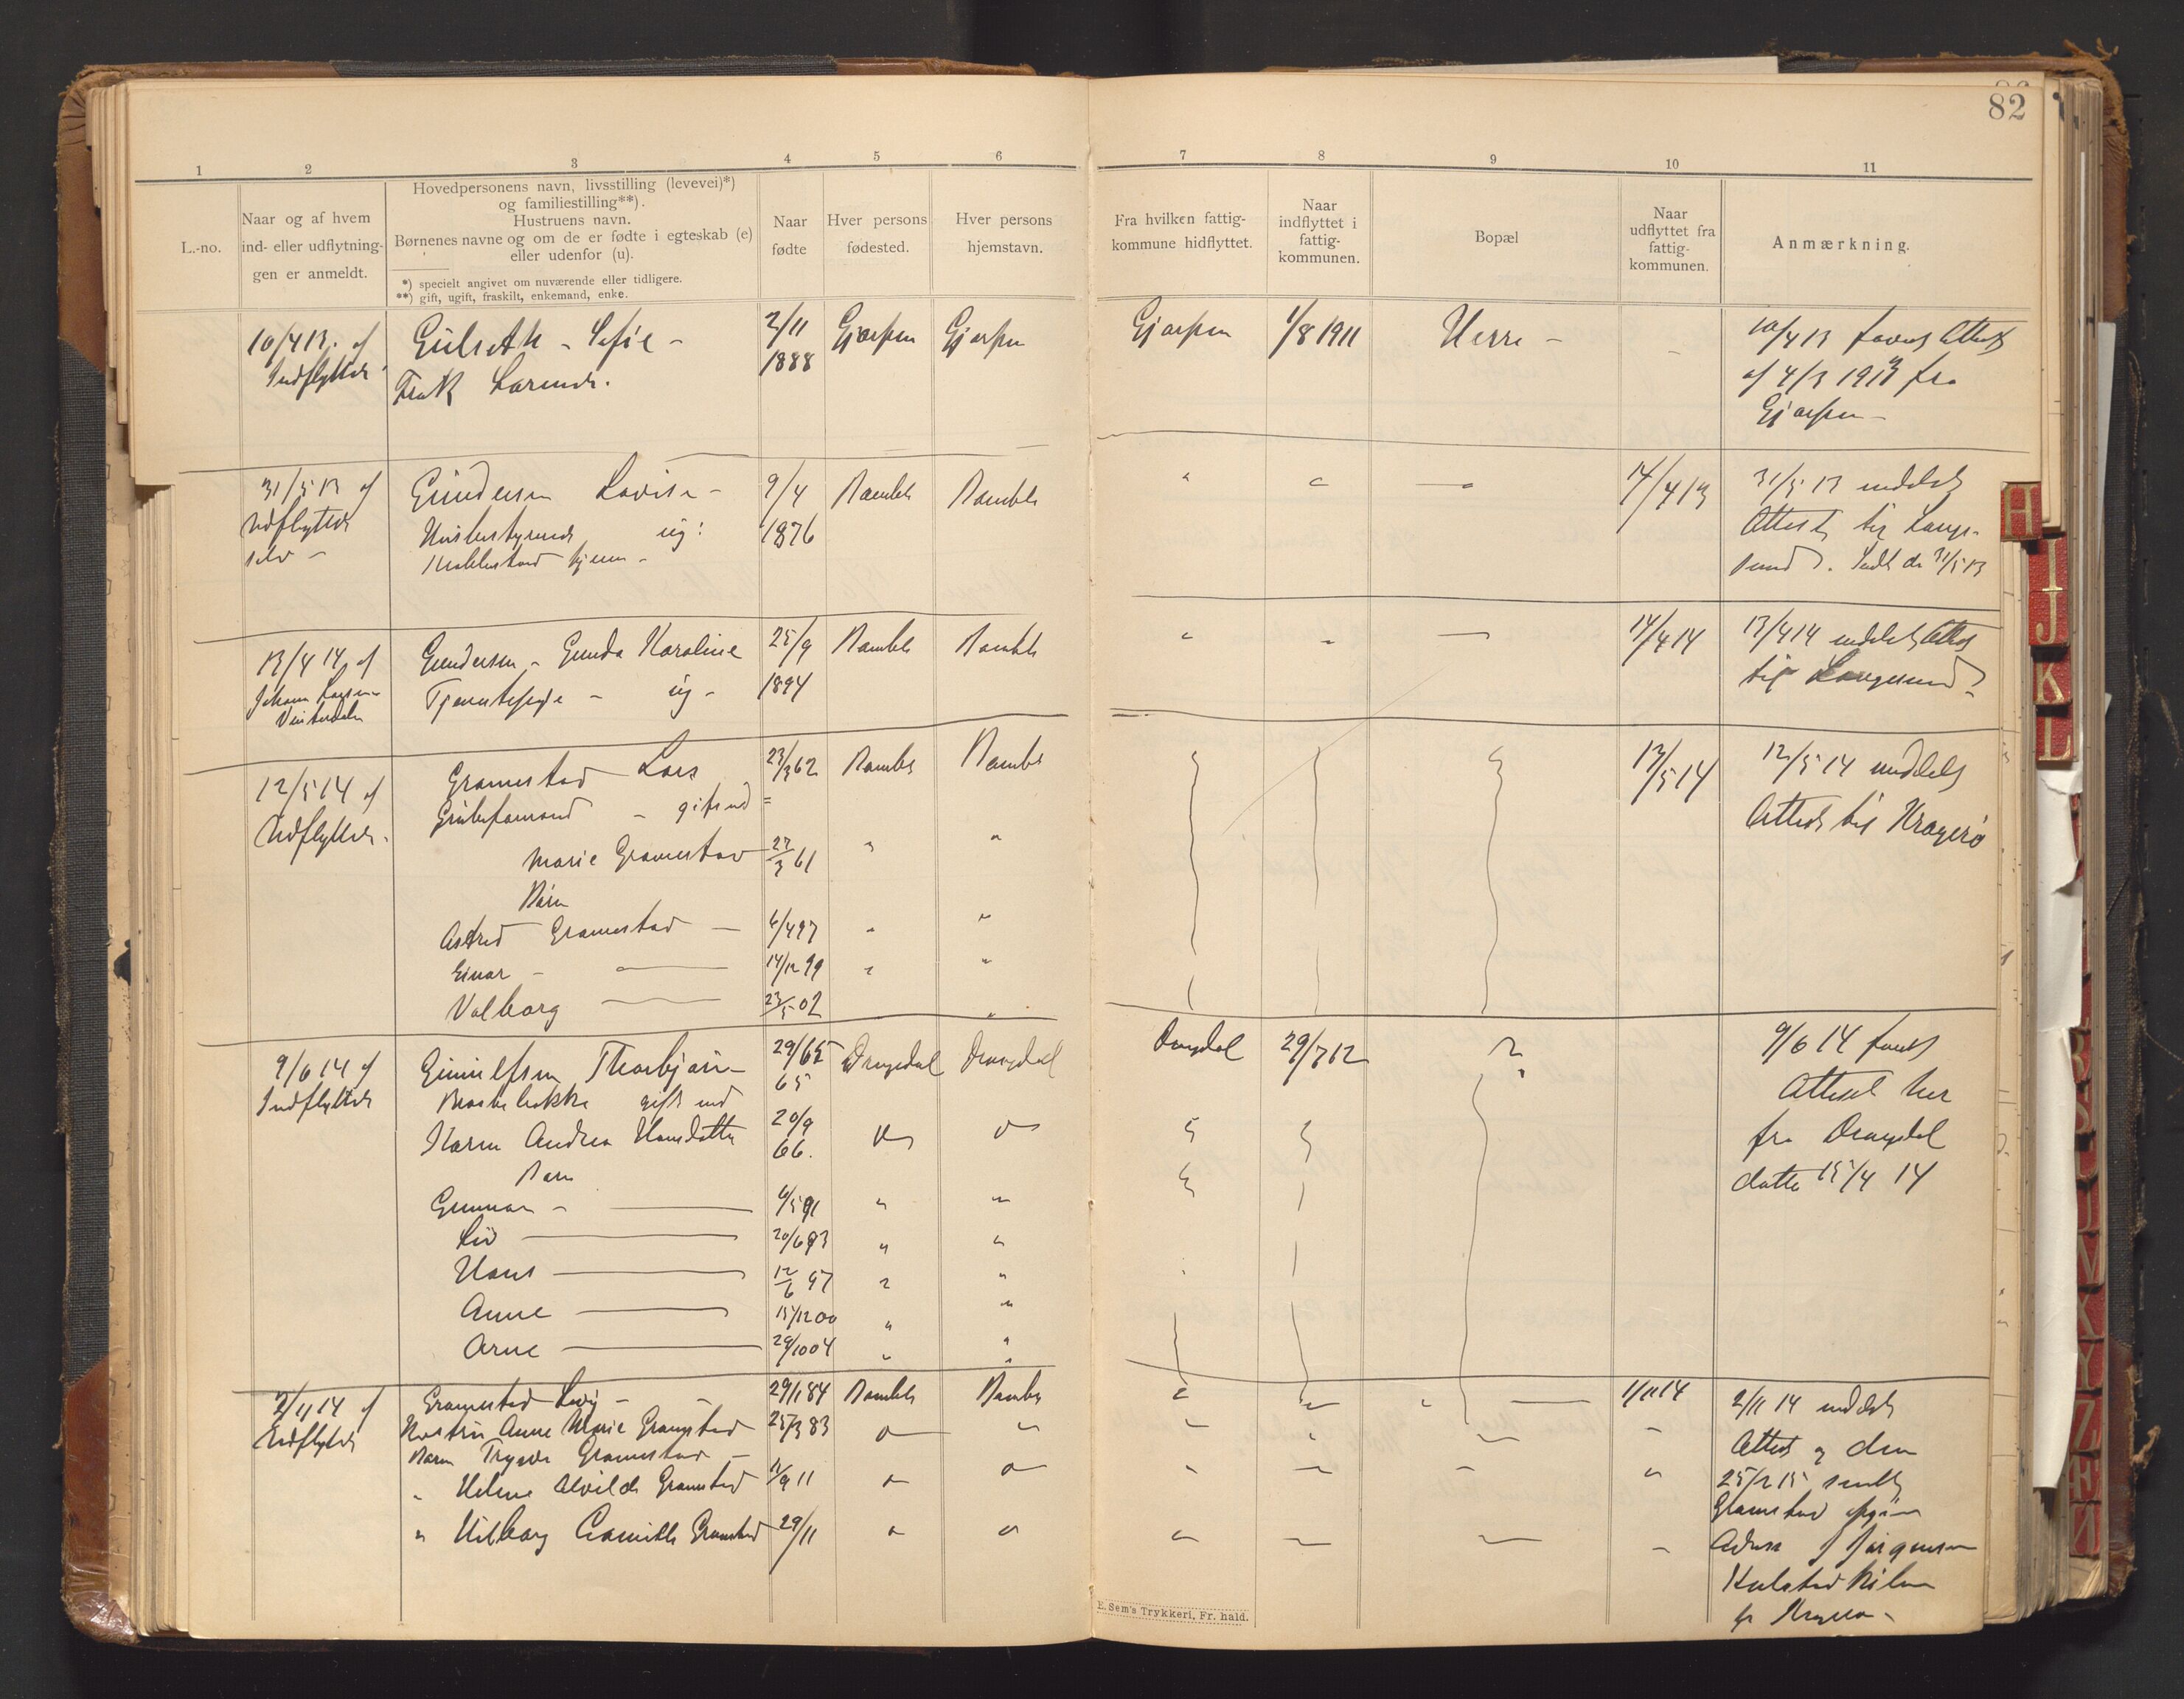 82
1 2 3 4 5 6 7 8 9 10 11
L.-no.
Naar og af hvem
ind- eller udflytnin-
gen er anmeldt.
Hovedpersonens navn, livsstilling (levevei)*)
og familiestilling**).
Hustruens navn.
Børnenes navne og om de er fødte i egteskab (e)
eller udenfor (u).
*) specielt angivet om nuværende eller tidligere.
**) gift, ugift, fraskilt, enkemand, enke.
Naar
fødte
Hver persons
fødested.
Hver persons
hjemstavn.
Fra hvilken fattig-
kommune hidflyttet.
Naar
indflyttet i
fattig-
kommunen.
Bopæl
Naar
udflyttet fra
fattig-
kommunen.
Anmærkning.
10/4 13. af Gulseth - Sofie - 2/11 Gjerpen Gjerpen Gjerpen 1/8 1911 Herre - - 10/4 13 Attest
Indflyttede 1888 af 4/3 1913 fra
Gjerpen -
31/5 13 af Gundersen Lovise - 9/4 Bamble Bamble " " 14/4 13 31/5 13 meddelt
Udflyttede ug: 1876 Attest til Lange-
selv - hjem - sund. Sendt d. 31/5 13
13/4 14 af Gundersen - Gunda Karoline 25/9 Bamble Bamble " " — 14/4 14 13/4 14 meddelt Attest
Johan Larsen Tjenestepige - ug - 1894 til Langesund
12/5 14 af Gromstad Lars 23/3 62 Bamble Bamble 13/5 14 12/5 14 meddelt
Udflyttede. Grubeformand - gift med = Attest til Kragerø
Marie Gromstad 27/3 61 " "
Børn
Astrid Gromstad — 6/4 97 " "
Einar - — 14/12 99 " "
Valborg — 23/5 02 "
9/6 14 af Gunulfsen Thorbjørn - 29/6 Drangedal Drangedal Drangedal 29/7 12 ? 9/6 14
Indflyttede gift med 65 Attest her
Karen Andrea Hansdatter 20/9 66. fra Drangedal
Børn datte 15/4 14
Gunnar - — 6/5 91 " "
Liv — 20/6 93 " "
Hans — 12/6 97 " "
Anne — 15/12 00 " "
Arne — 29/10 04 " "
2/11 14 af Gromstad - 29/1 84 Bamble Bamble " 1/11 14 2/11 14 meddelt
Udflyttede Hustru Anne Marie Gromstad 25/3 83 Attest og den
Børn Trygve Gromstad - 25/2 15 sendt
" Helene Alvilde Gromstad 11/9 11 Gromstad
" Valborg Camilla Gromstad 29/11 Jørgensen
E. Sem's Trykkeri, Fr. hald.
H
I
J
K
L